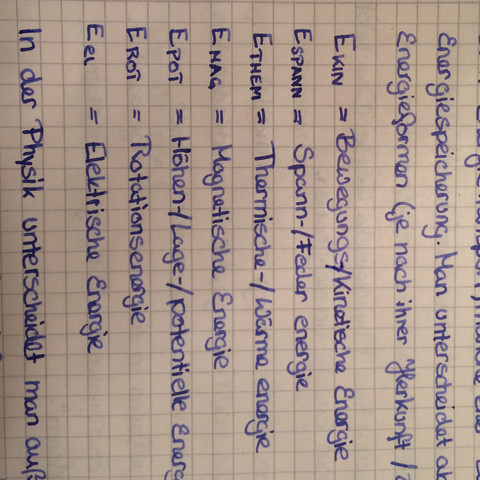 Energiespeicherung. Man unterscheidet
Energieformen (je nach ihrer Herkunft /
EKIN = Bewegungs-/Kinetische Energie
ESPANN = Spann-/Feder energie
ETHEM = Thermische-/Wärme energie
EMAG = Magnetische Energie
EPOT = Höhen-/Lage-/potentielle Energ
EROT = Rotationsenergie
Eel = Elektrische Energie
In der Physik unterscheidet man auß